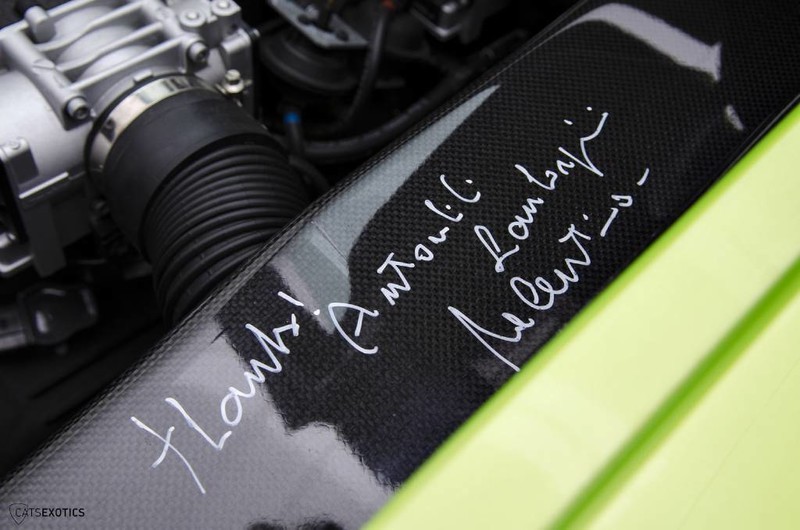 thanks!
Automobili
Lamborghini
Valentino
CATSEXOTICS